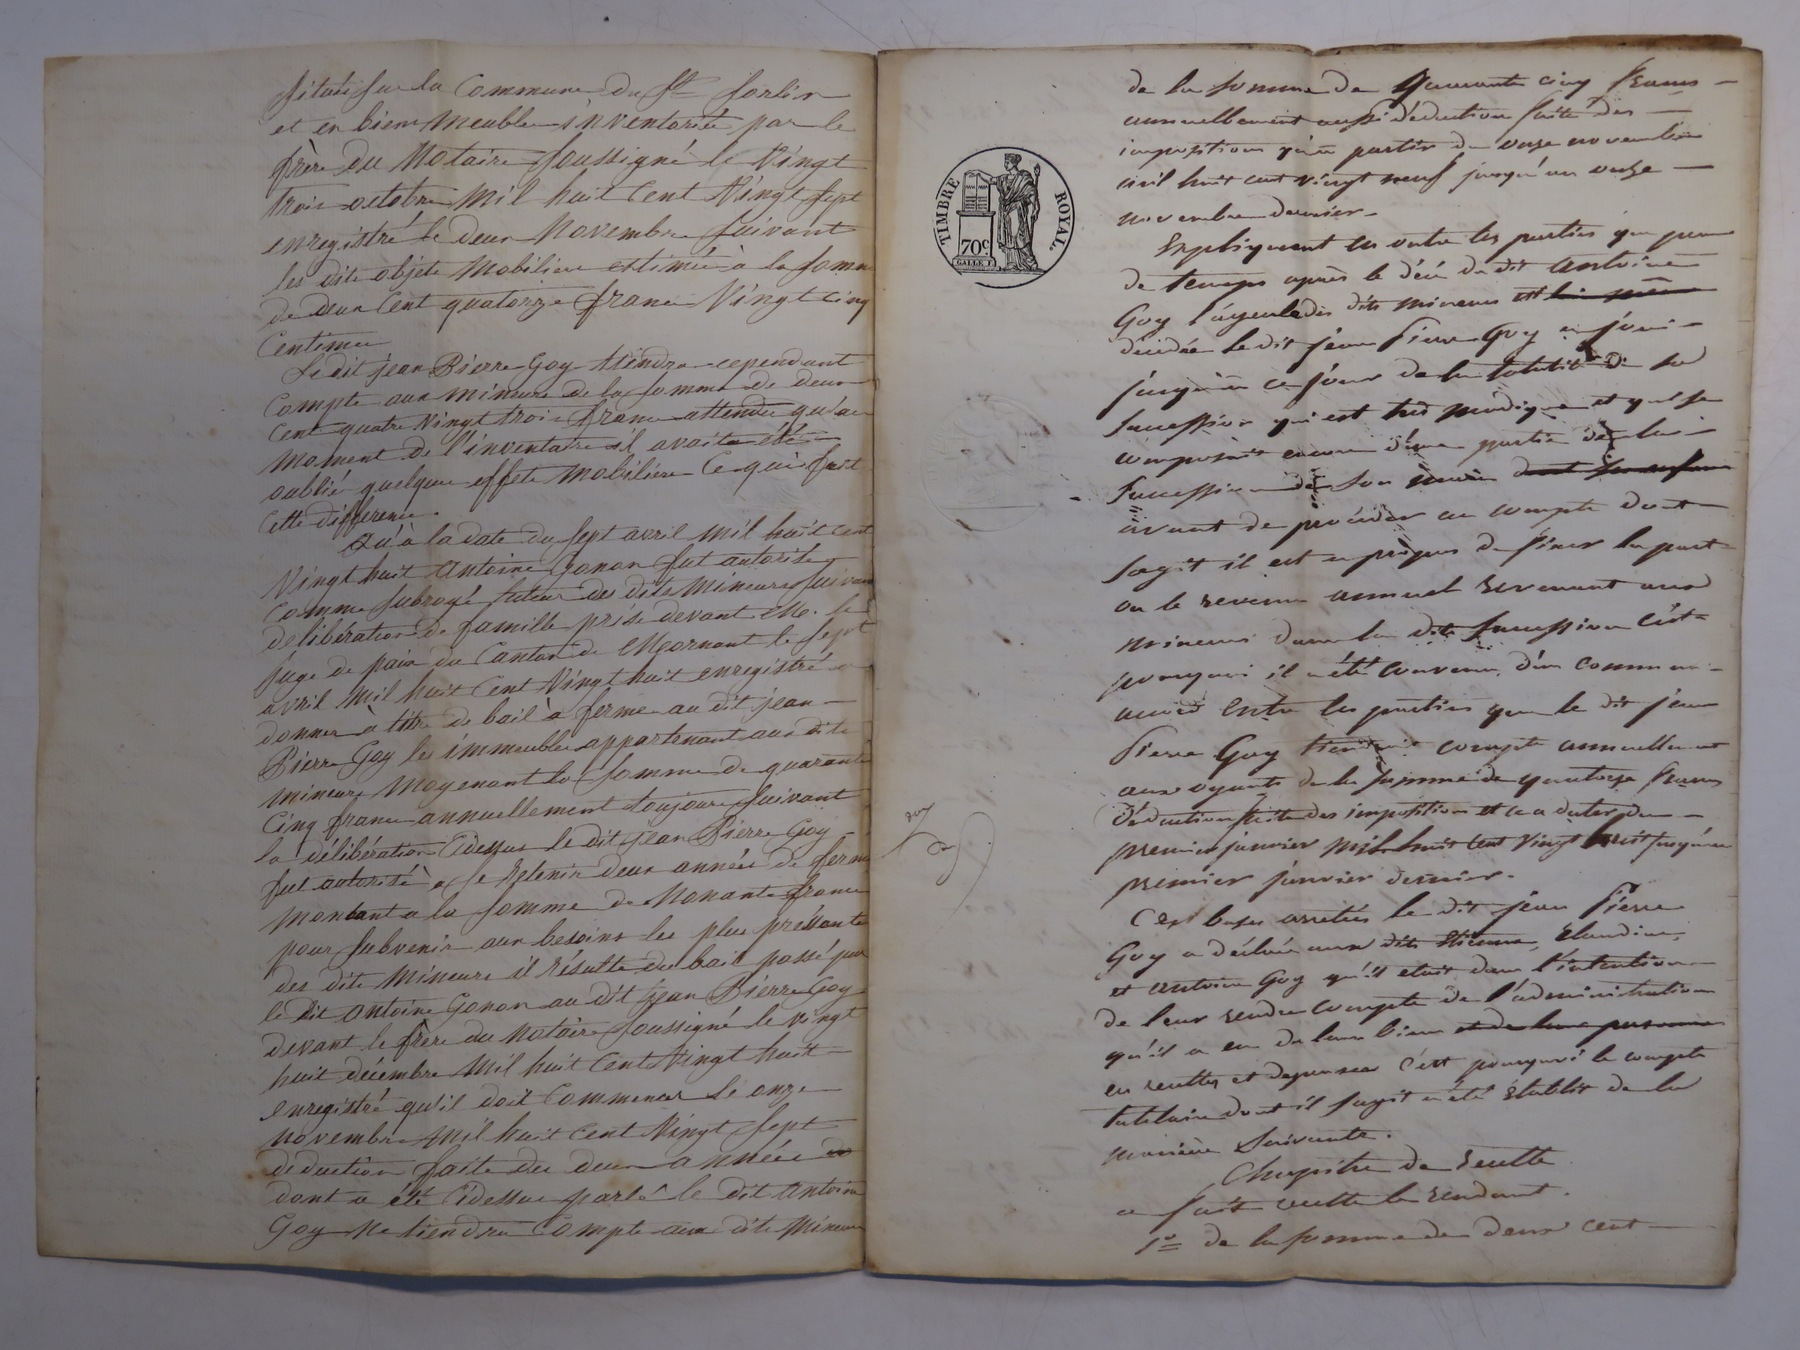 situés sur la Commune du St Sorlin
et en biens Meubles inventoriés par le
frère du Notaire soussigné le Vingt
trois octobre Mil huit Cent Vingt sept
enregistré le deux Novembre suivant
les dits objets Mobiliers estimés à la somme
de deux Cent quatorze francs Vingt Cinq
Centimes
Le dit jean Pierre Goy tiendra cependant
Compte aux mineurs de la somme de deux
Cent quatre Vingt trois francs attendu qu'au
moment de l'inventaire il avait été
oublié quelques effets Mobiliers Ce qui fait
Cette différence.
Qu'à la date du sept avril Mil huit cent
Vingt huit Antoine Gonon fut autorisé
Comme subrogé tuteur des dits Mineurs suivant
délibération de famille prise devant Mr. le
juge de paix du Canton de Mornant le sept
avril Mil huit Cent Vingt huit enregistré à
donner à titre de bail à ferme au dit jean
Pierre Goy les immeubles appartenant aux dits
mineurs Moyenant la somme de quarante
Cinq francs annuellement toujours suivant
la délibération Cidessus le dit jean Pierre Goy
fut autorisé à se retenir deux années de ferme
Montant a la somme de Nonante francs
pour subvenir aux besoins les plus pressants
des dits Mineurs il résulte du bail passé par
le dit Antoine Gonon au dit jean Pierre Goy
devant le frère du Notaire soussigné le vingt
huit décembre Mil huit Cent Vingt huit
enregistré qu'il doit Commencer le onze
novembre Mil huit Cent Vingt sept
déduction faite des deux années
dont a été Cidessus parlé le dit Antoine
Goy ne tiendra Compte aux dits Mineurs
TIMBRE ROYAL.
70c
de la somme de quarante cinq francs
annuellement aussi déduction faite des
impositions qu'à partir du onze novembre
mil huit cent vingt neuf jusqu'au onze
novembre dernier.
Expliquent en outre les parties que peu
de temps après le décé du dit antoine
Goy l'ayeul des dits mineurs est
décédée le dit jean Pierre Goy a joui
jusqu'à ce jour de la totalité de sa
succession qui est très modique et qui se
composait encore d'une partie de la
succession de son
avant de procéder au compte dont
sagit il est à propos de fixer la part
ou le revenu annuel revenant aux
mineurs dans la dite succession c'est
pourquoi il a été convenu d'un commun
accord entre les parties que le dit jean
Pierre Goy tiendrait compte annuellement
aux oyants de la somme de quatorze francs
Déduction faite des imposition et ce a dater du
premier janvier mil huit Cent Vingt huit jusqu'au
premier janvier dernier.
Ces bases arrêtées le dit jean Pierre
Goy a déclaré aux dits Etienne, Claudine,
et antoine Goy qu'il était dans l'intention
de leur rendre compte de l'administration
qu'il a eu de leurs biens et de leurs personnes
en recettes et depenses c'est pourquoi le compte
tutélaire dont il sagit a été établit de la
manière suivante.
Chapitre de recette
a fait recette le rendant.
1o de la somme de deux cent